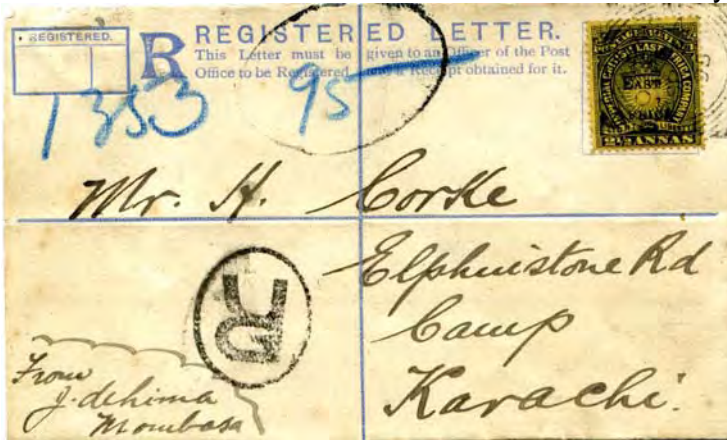 REGISTERED.
R
REGISTERED LETTER.
This Letter must be given to an Officer of the Post
Office to be Registered, and a Receipt obtained for it.
1353
95
BRITISH EAST AFRICA COMPANY
EAST
2½ ANNAS
Mr. H. Corke
Elphinstone Rd
Camp
Karachi.
R
From
J. de
Mombasa